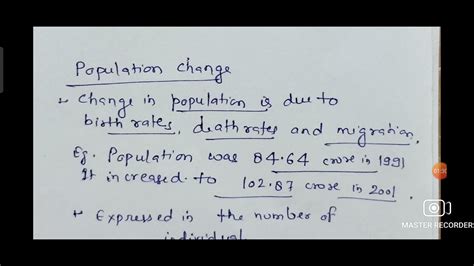 Population change
Change in population is due to
birth rates, death rates and migration.
Eg. Population was 84.64 crore in 1991
It increased to 102.87 crore in 2001.
Expressed in the number of
individual
MASTER RECORDER